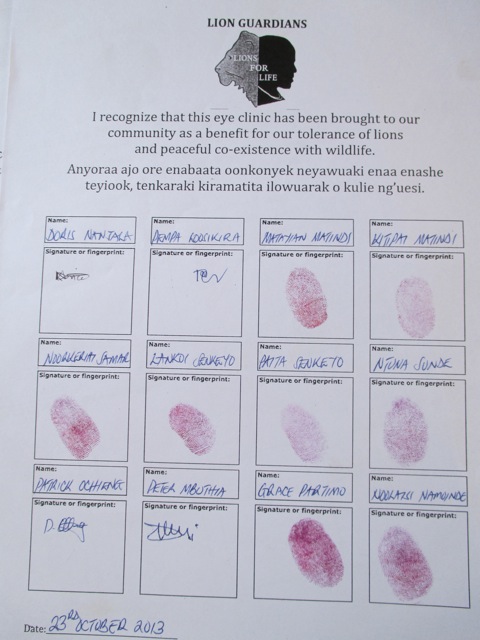 LION GUARDIANS
LIONS
FOR
LIFE
I recognize that this eye clinic has been brought to our
community as a benefit for our tolerance of lions
and peaceful co-existence with wildlife.
Anyoraa ajo ore enabaata oonkonyek neyawuaki enaa enashe
teyiook, tenkaraki kiramatita ilowuarak o kulie ng'uesi.
Name: Name: Name: Name:
DORIS NANTALA MATAYIAN MATINDI KITIPAI MATINDI
Signature or fingerprint: Signature or fingerprint: Signature or fingerprint: Signature or fingerprint:
Name: Name: Name: Name:
LANKOI SENKEYO PATTA SENKEYO NTUNA SUNDE
Signature or fingerprint: Signature or fingerprint: Signature or fingerprint: Signature or fingerprint:
Name: Name: Name: Name:
PATRICK OCHIENG PETER MBUTHIA GRACE PARTIMO
Signature or fingerprint: Signature or fingerprint: Signature or fingerprint: Signature or fingerprint:
Date: 23RD OCTOBER 2013